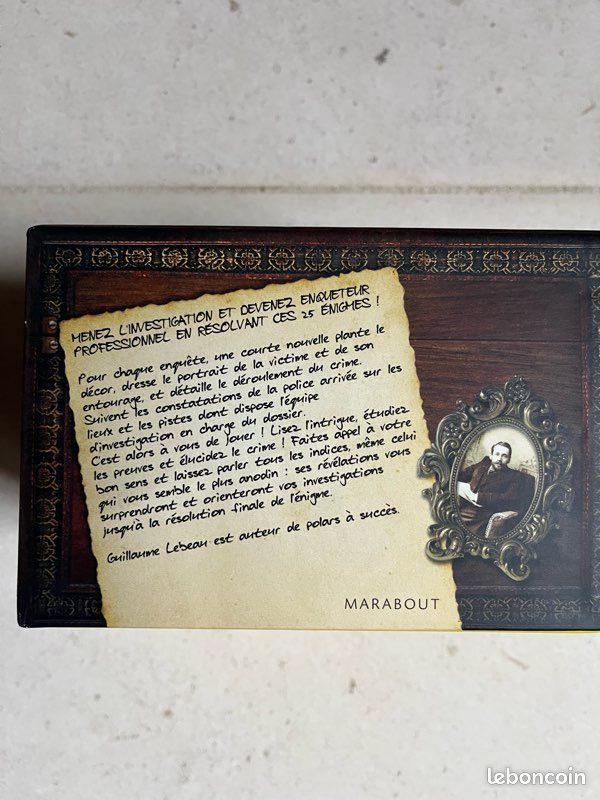 MENEZ L'INVESTIGATION ET DEVENEZ ENQUETEUR
PROFESSIONNEL EN RÉSOLVANT CES 25 ÉNIGMES !
Pour chaque enquête, une courte nouvelle plante le
décor, dresse le portrait de la victime et de son
entourage, et détaille le déroulement du crime.
Suivent les constatations de la police arrivée sur les
lieux et les pistes dont dispose l'équipe
d'investigation en charge du dossier.
C'est alors à vous de jouer ! Lisez l'intrigue, étudiez
les preuves et élucidez le crime ! Faites appel à votre
bon sens et laissez parler tous les indices, même celui
qui vous semble le plus anodin : ses révélations vous
surprendront et orienteront vos investigations
jusqu'à la résolution finale de l'énigme.
Guillaume Lebeau est auteur de polars à succès.
MARABOUT
leboncoin